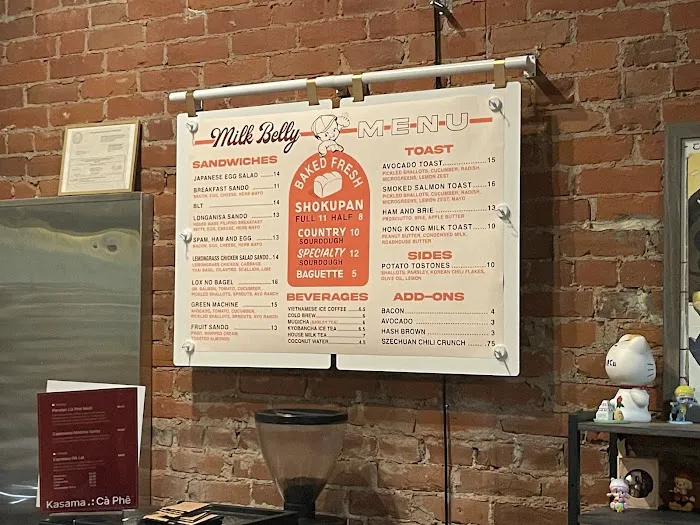 Milk Belly MENU
SANDWICHES
JAPANESE EGG SALAD 14
BREAKFAST SANDO 11
BACON, EGG, CHEESE, HERB MAYO
BLT 14
LONGANISA SANDO 13
HOUSE MADE FILIPINO BREAKFAST
PATTY, EGG, CHEESE, HERB MAYO
SPAM, HAM AND EGG 13
BACON, EGG, CHEESE, HERB MAYO
LEMONGRASS CHICKEN SALAD SANDO 14
LEMONGRASS CHICKEN, CABBAGE,
THAI BASIL, CILANTRO, SCALLION, LIME
LOX NO BAGEL 16
SALMON, TOMATO, CUCUMBER,
PICKLED SHALLOTS, SPROUTS, AVO RANCH
GREEN MACHINE 15
AVOCADO, TOMATO, CUCUMBER,
PICKLED SHALLOTS, SPROUTS, AVO RANCH
FRUIT SANDO 13
FRUIT, WHIPPED CREAM,
TOASTED ALMONDS
BAKED FRESH
SHOKUPAN
FULL 11 HALF 8
COUNTRY 10
SOURDOUGH
SPECIALTY 12
SOURDOUGH
BAGUETTE 5
BEVERAGES
VIETNAMESE ICE COFFEE 6.5
COLD BREW
MUGICHA (BARLEY TEA)
KYOBANCHA ICE TEA
HOUSE MILK TEA
COCONUT WATER 4.5
TOAST
AVOCADO TOAST 15
PICKLED SHALLOTS, CUCUMBER, RADISH,
MICROGREENS, LEMON ZEST
SMOKED SALMON TOAST 16
PICKLED SHALLOTS, CUCUMBER, RADISH,
MICROGREENS, LEMON ZEST, MAYO
HAM AND BRIE 13
PROSCIUTTO, BRIE, APPLE BUTTER
HONG KONG MILK TOAST 10
PEANUT BUTTER, CONDENSED MILK,
ROADHOUSE BUTTER
SIDES
POTATO TOSTONES 10
SHALLOTS, PARSLEY, KOREAN CHILI FLAKES,
OLIVE OIL, LEMON
ADD-ONS
BACON 4
AVOCADO 3
HASH BROWN 3
SZECHUAN CHILI CRUNCH .75
Kasama .: Cà Phê